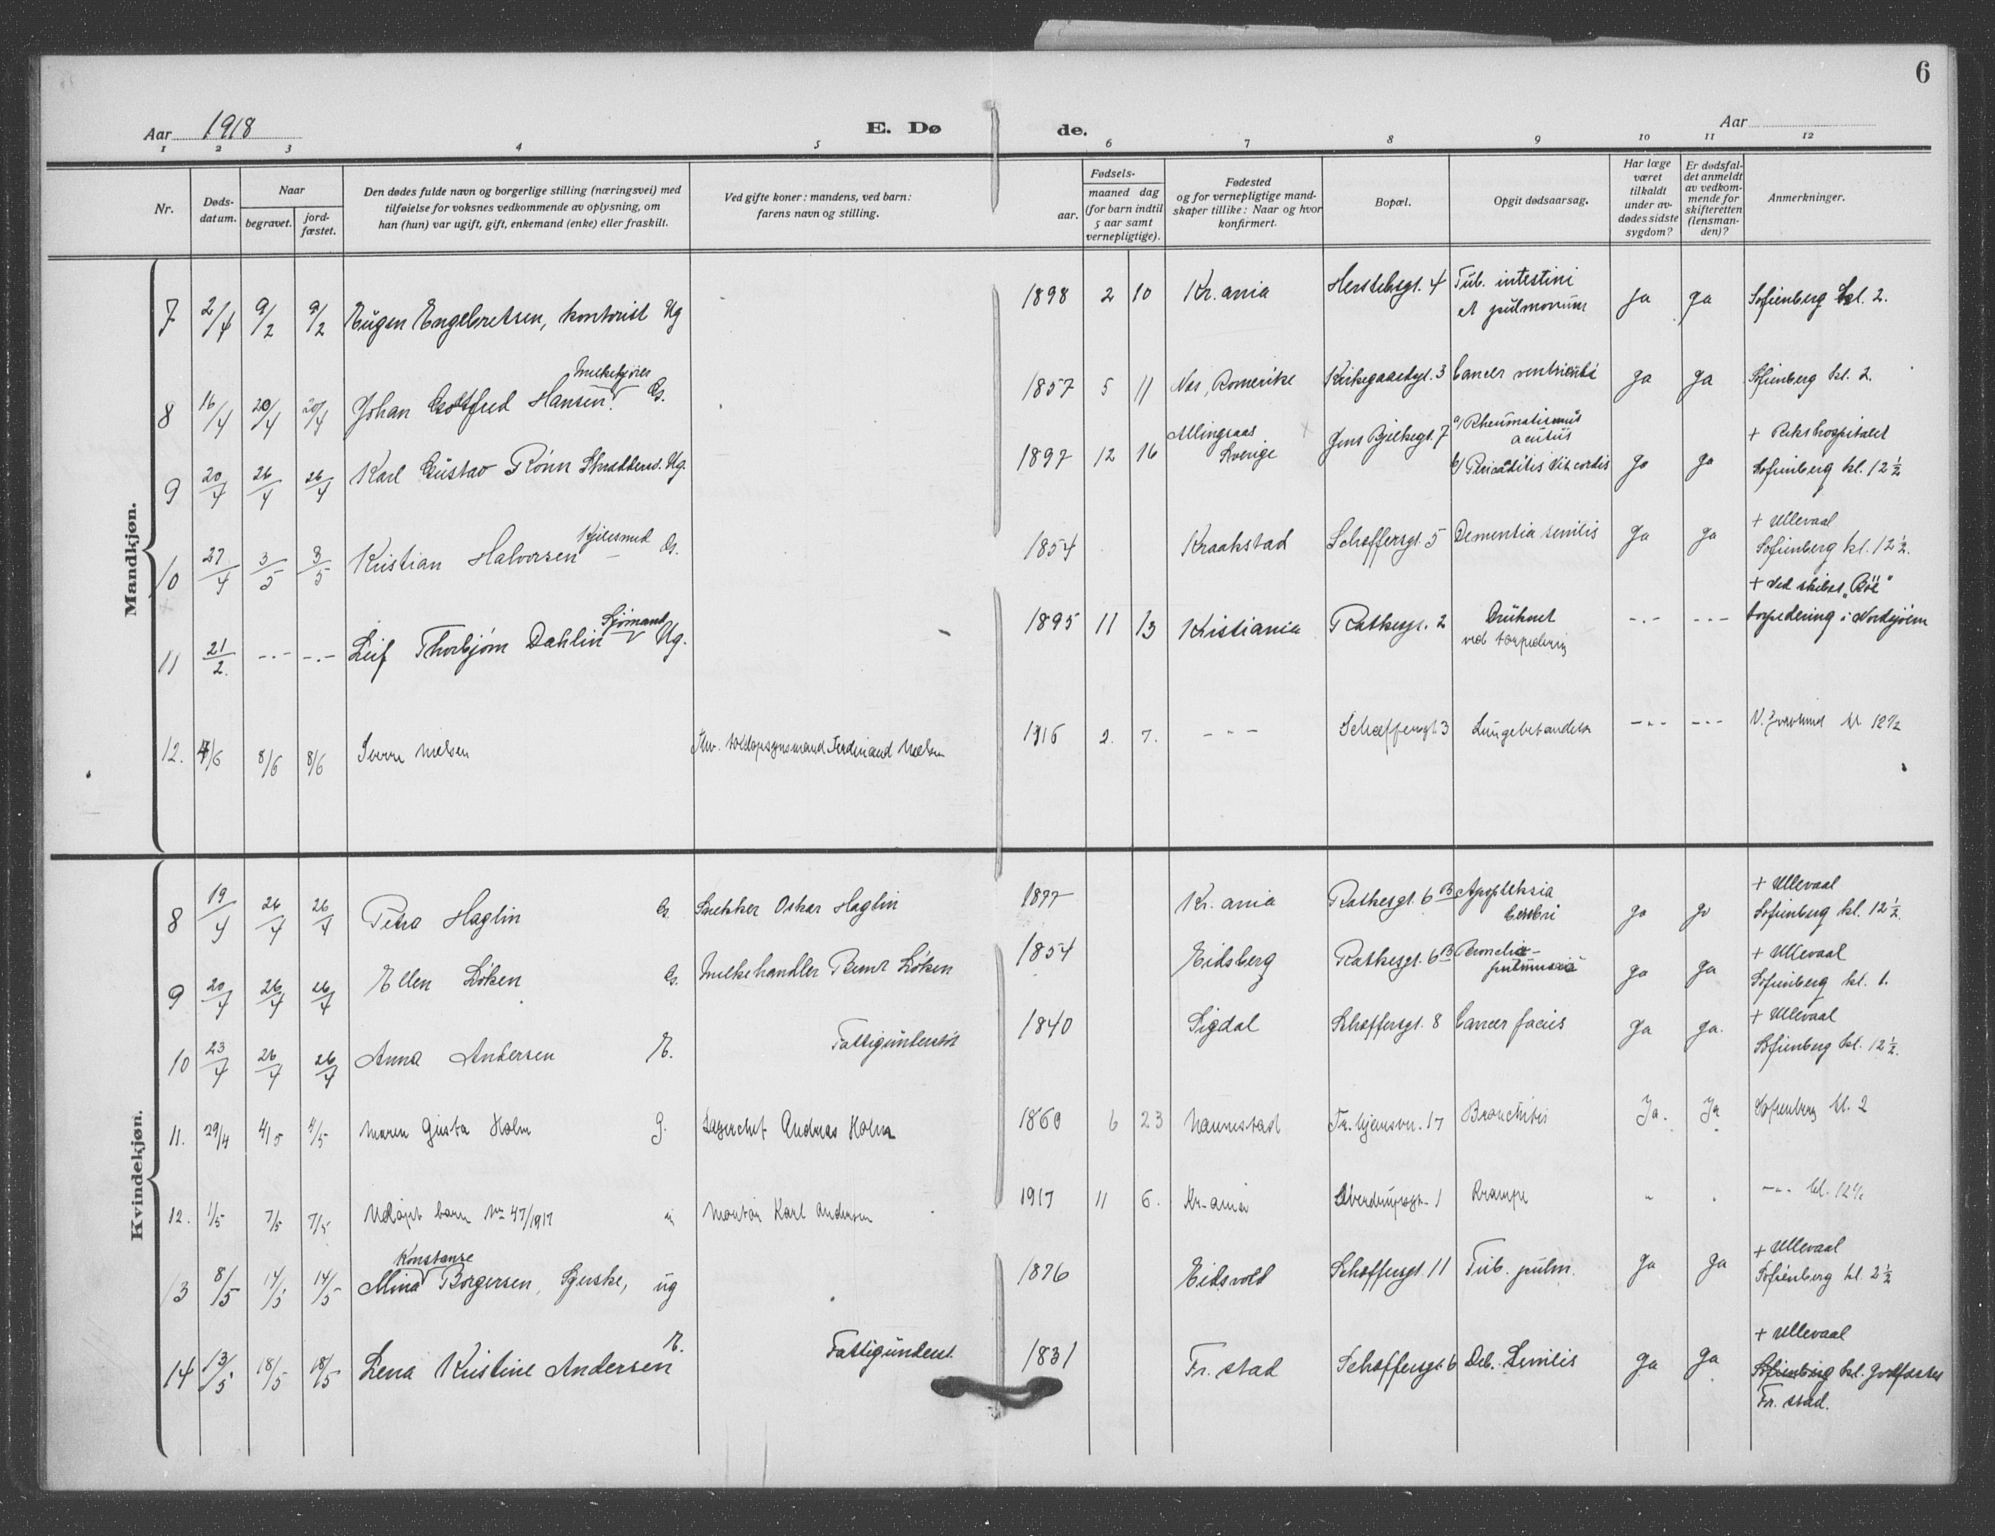 6
Aar 1918
E. Dø de.
Aar
1 2 3 4 5 6 7 8 9 10 11 12
Nr.
Døds-
datum.
Naar
begravet.
jord-
fæstet.
Den dødes fulde navn og borgerlige stilling (næringsvei) med
tilføielse for voksnes vedkommende av oplysning, om
han (hun) var ugift, gift, enkemand (enke) eller fraskilt.
Ved gifte koner: mandens, ved barn:
farens navn og stilling.
Fødsels-
aar.
maaned dag
(for barn indtil
5 aar samt
vernepligtige).
Fødested
og for vernepligtige mand-
skaper tillike: Naar og hvor
konfirmert.
Bopæl.
Opgit dødsaarsag.
Har læge
været
tilkaldt
under av-
dødes sidste
sygdom?
Er dødsfal-
det anmeldt
av vedkom-
mende for
skifteretten
(lensman-
den)?
Anmerkninger.
Mandkjøn.
7 2/4 9/2 9/2 Eugen Engebretsen, kontorist Ug 1898 2 10 Kr.ania Herslebsgt. 4 Tub. intestini
et pulmonum ja ja Sofienberg kl. 2.
8 16/4 20/4 20/4 Johan Gotfred Hansen. Melkekjører G. 1857 5 11 Nes, Romerike Kirkegaardsgt. 3 Cancer ventriculi ja ja Sofienberg kl. 2.
9 20/4 26/4 26/4 Karl Gustav Rönn Skrædders. Ug. 1897 12 16 Allingsaas
Sverige Jens Bjelkegt. 7 a/ Rheumatismus
acutus
b/ Pericaditis Vit. cordis ja ja + Rikshospitalet
Sofienberg kl. 12 1/2
10 27/4 3/5 3/5 Kristian Halvorsen Kjelesmed G. 1854 Kraakstad Schøffersgt. 5 Dementia senilis ja ja + Ullevaal
Sofienberg kl. 12 1/2.
11 21/2. -..- -..- Leif Thorbjørn Dahlin Sjømand Ug. 1895 11 13 Kristiania Rathkesgt. 2 Druknet
ved torpedering -..- -..- + Ved skibet "Böe"
torpedering i Nordsjøen
12. 4/6 8/6 8/6 Sverre Nielsen Ferdinand Nielsen 1916 2. 7. - - - Schæffersgt 3 Lungebetændelse -..- -..- kl 12 1/2
Kvindekjøn.
8 19/4 26/4 26/4 Petra Haglin G. Snekker Oskar Haglin 1877 Kr.ania Rathkesgt. 6 B Apopleksia
cerebri ja ja + Ullevaal
Sofienberg kl. 12 1/2.
9 20/4 26/4 26/4 Ellen Løken G. Melkehandler Bernt Løken 1854 Eidsberg Rathkesgt. 6 B ja ja + Ullevaal
Sofienberg kl. 1.
10 23/4 26/4 26/4 Anna Andersen E. Fattigunderst 1840 Sigdal Schøffersgt. 8 Cancer facies ja ja. + Ullevaal
Sofienberg kl. 12 1/2.
11. 29/4 4/5 4/5 Maren Gusta Holm G. Lagerchef Andreas Holm 1860 6 23 Nannestad 17 Bronchitis Ja. Ja Sofienberg kl. 2
12. 1/5 7/5 7/5 Udøpt barn No 47/1917 Montør Karl Andersen 1917 11 6. Kr.ania Sverdrupsgt. 1 Krampe " " -..- kl. 12 1/2
13 8/5 14/5 14/5 Mina Konstanse Borgersen, Syerske, ug 1876 Eidsvold Schøffersgt. 11 Tub. pulm. ja ja + Ullevaal
Sofienberg kl. 2 1/2
14 13/5 18/5 18/5 Lena Kristine Andersen E. Fattigunderst. 1831 Fr.stad Schøffersgt. 6 Deb. Senilis ja ja + Ullevaal
Sofienberg kl. Jordfæstes
Fr. stad.